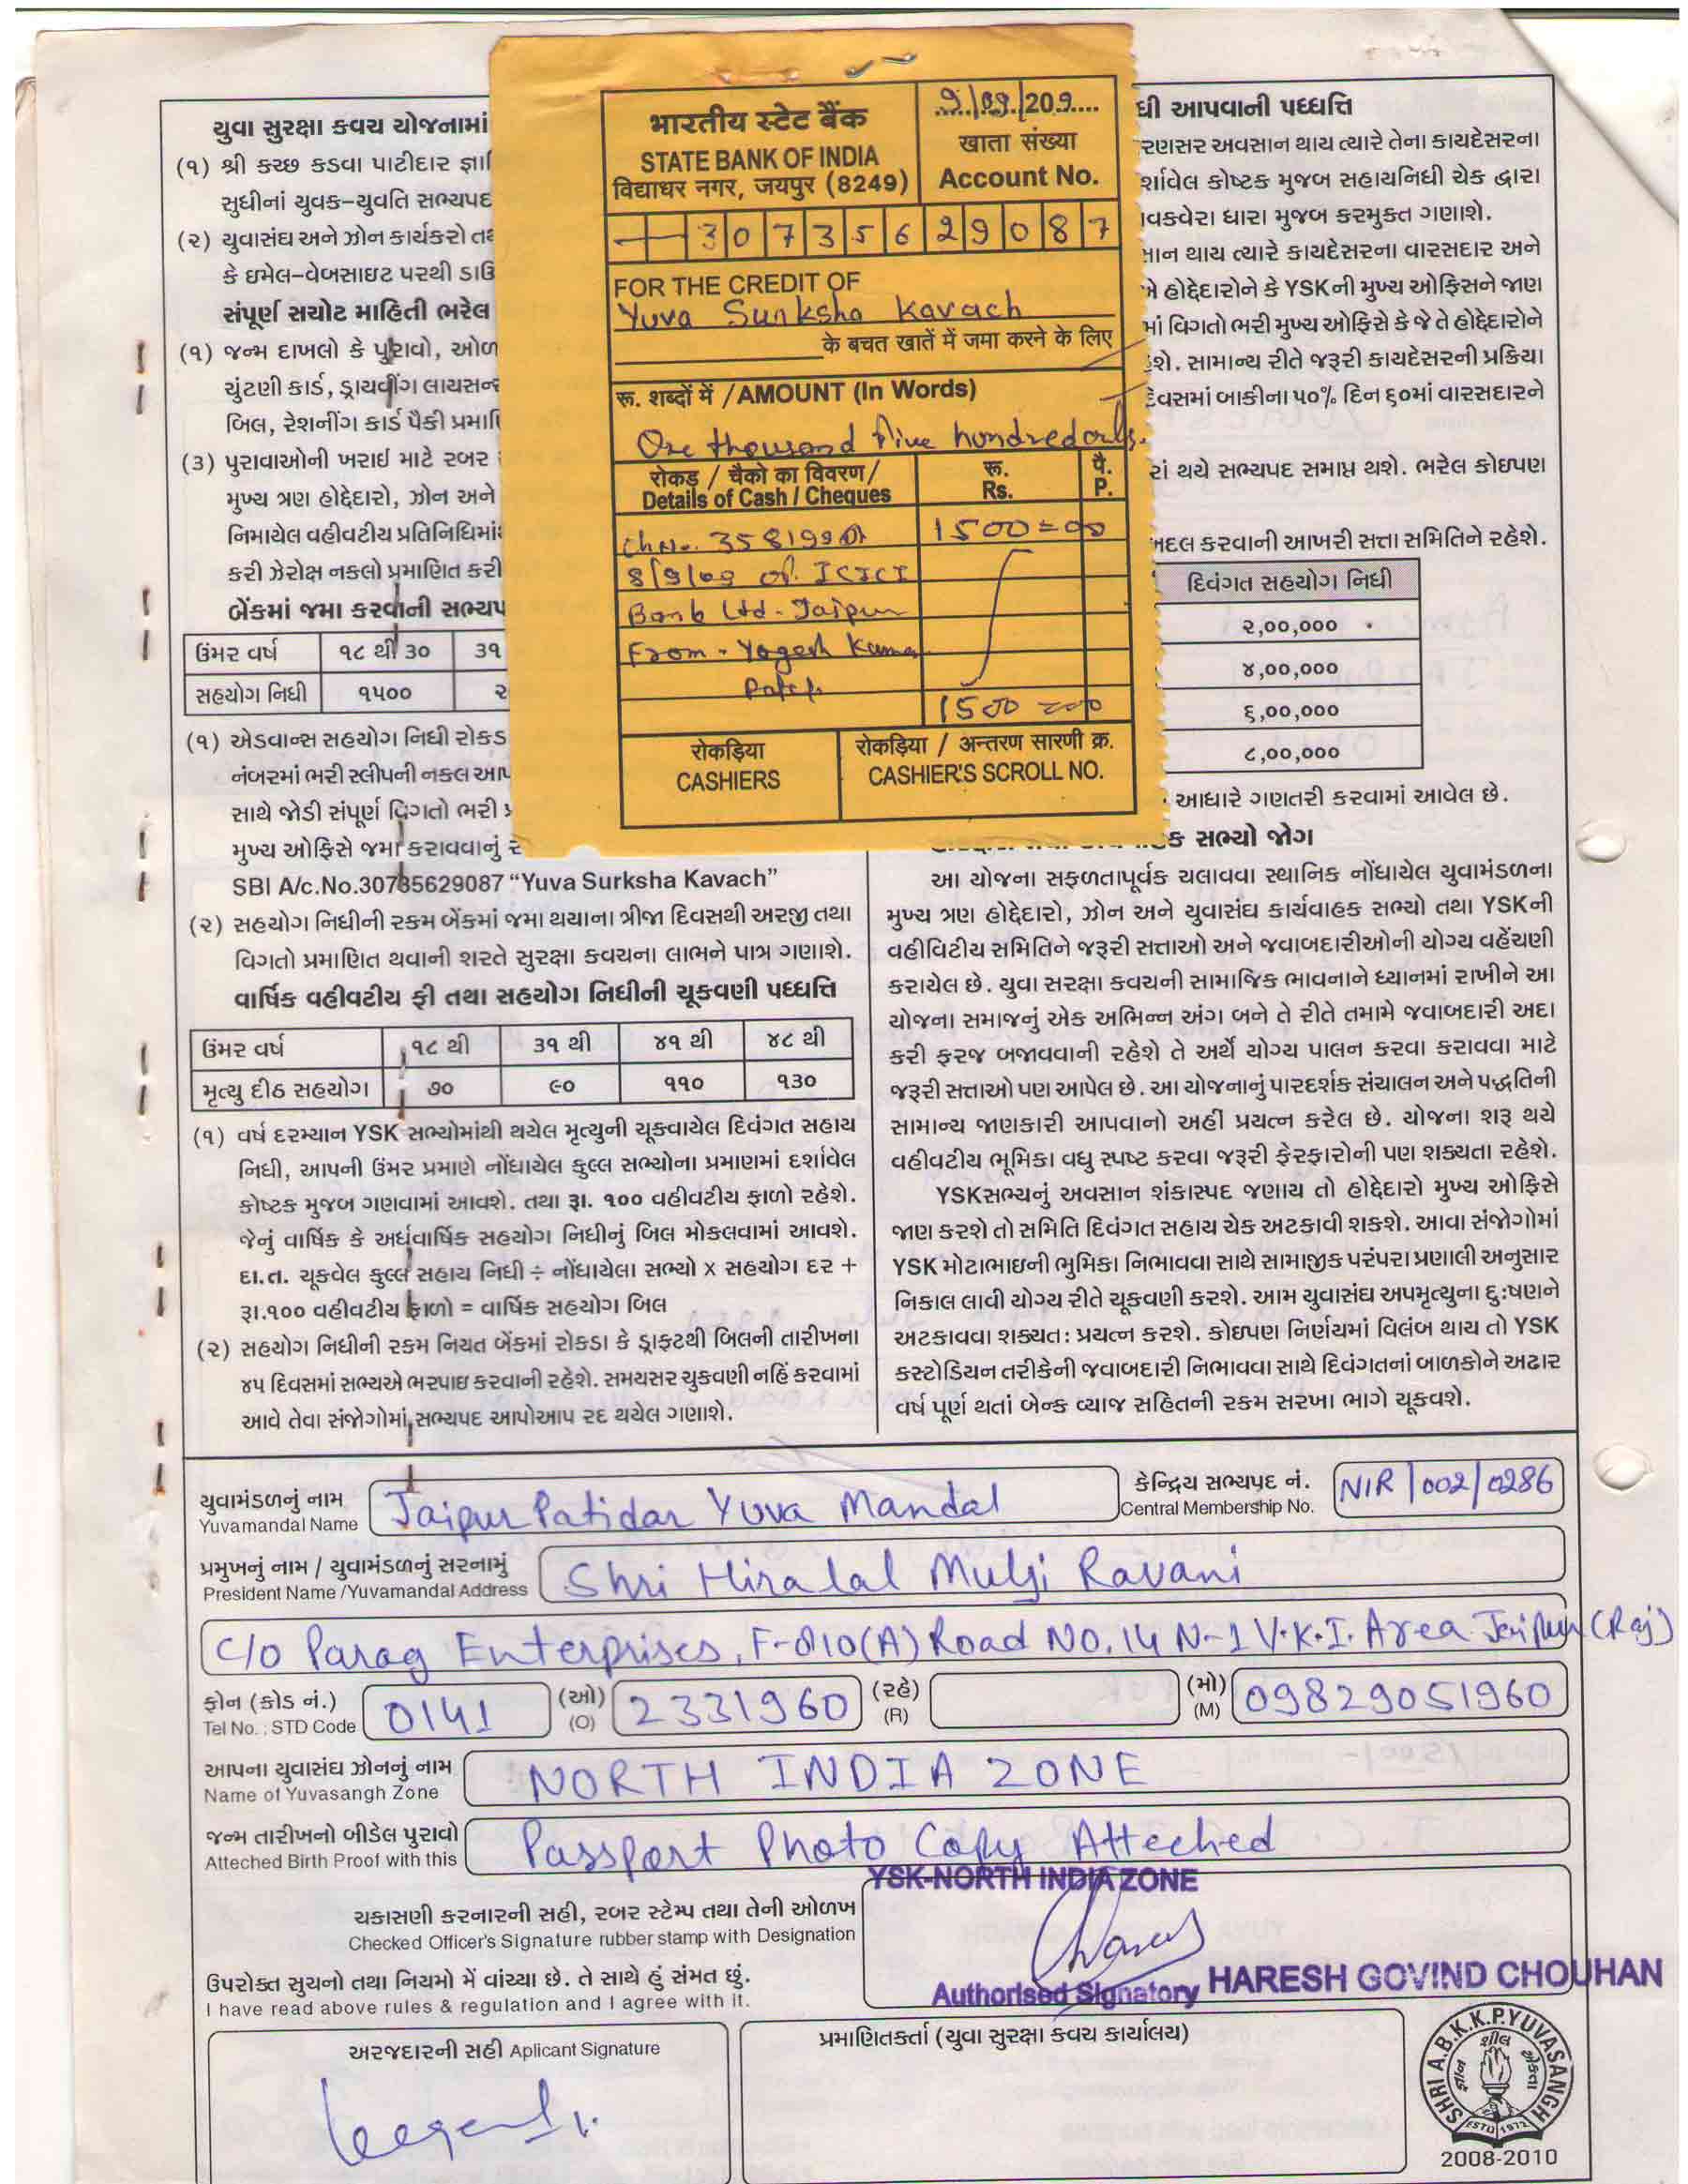 યુવા સુરક્ષા કવચ યોજનામાં
(૧) શ્રી કચ્છ કડવા પાટીદાર જ્ઞા
સુધીનાં યુવક-યુવતિ સભ્યપદ
(૨) યુવાસંઘ અને ઝોન કાર્યકરો
કે ઇમેલ-વેબસાઇટ પરથી ડા
સંપૂર્ણ સચોટ માહિતી ભરેલ
(૧) જન્મ દાખલો કે પુરાવો, ઓળ
ચુંટણી કાર્ડ, ડ્રાયવીંગ લાયસન્સ
બિલ, રેશનીંગ કાર્ડ પૈકી પ્રમાણિ
(૩) પુરાવાઓની ખરાઇ માટે રબર
મુખ્ય ત્રણ હોદ્દેદારો, ઝોન અને
નિમાયેલ વહીવટીય પ્રતિનિધિમાં
કરી ઝેરોક્ષ નકલો પ્રમાણિત કરી
બેંકમાં જમા કરવાની સભ્યપ
ઉંમર વર્ષ ૧૮ થી ૩૦ ૩૧
સહયોગ નિધી ૧૫૦૦ ૨
(૧) એડવાન્સ સહયોગ નિધી રોકડ
નંબરમાં ભરી સ્લીપની નકલ આપ
સાથે જોડી સંપૂર્ણ વિગતો ભરી
મુખ્ય ઓફિસે જમા કરાવવાનું
SBI A/c.No.30735629087 “Yuva Surksha Kavach”
(૨) સહયોગ નિધીની રકમ બેંકમાં જમા થયાના ત્રીજા દિવસથી અરજી તથા
વિગતો પ્રમાણિત થવાની શરતે સુરક્ષા કવચના લાભને પાત્ર ગણાશે.
વાર્ષિક વહીવટીય ફી તથા સહયોગ નિધીની ચૂકવણી પધ્ધતિ
ઉંમર વર્ષ ૧૮ થી ૩૧ થી ૪૧ થી ૪૮ થી
મૃત્યુ દીઠ સહયોગ ૭૦ ૯૦ ૧૧૦ ૧૩૦
(૧) વર્ષ દરમ્યાન YSK સભ્યોમાંથી થયેલ મૃત્યુની ચૂકવાયેલ દિવંગત સહાય
નિધી, આપની ઉંમર પ્રમાણે નોંધાયેલ કુલ્લ સભ્યોના પ્રમાણમાં દર્શાવેલ
કોષ્ટક મુજબ ગણવામાં આવશે. તથા રૂા. ૧૦૦ વહીવટીય ફાળો રહેશે.
જેનું વાર્ષિક કે અર્ધવાર્ષિક સહયોગ નિધીનું બિલ મોકલવામાં આવશે.
દા.ત. ચૂકવેલ કુલ્લ સહાય નિધી ÷ નોંધાયેલા સભ્યો x સહયોગ દર +
રૂા.૧૦૦ વહીવટીય ફાળો = વાર્ષિક સહયોગ બિલ
(૨) સહયોગ નિધીની રકમ નિયત બેંકમાં રોકડા કે ડ્રાફટથી બિલની તારીખના
૪૫ દિવસમાં સભ્યએ ભરપાઇ કરવાની રહેશે. સમયસર ચુકવણી નહિં કરવામાં
આવે તેવા સંજોગોમાં સભ્યપદ આપોઆપ રદ થયેલ ગણાશે.
भारतीय स्टेट बैंक
STATE BANK OF INDIA
विद्याधर नगर, जयपुर (8249)
9/09/209....
खाता संख्या
Account No.
30735629087
FOR THE CREDIT OF
Yuva Surksha Kavach
के बचत खातें में जमा करने के लिए
रू. शब्दों में / AMOUNT (In Words)
One thousand five hundred only.
रोकड़ / चैको का विवरण/ रू. पै.
Details of Cash / Cheques Rs. P.
Ch No. 358199 Dt 1500=00
8/9/09 of ICICI
Bank Ltd - Jaipur
From - Yogesh Kumar
Patel
1500=00
रोकड़िया रोकड़िया / अन्तरण सारणी क्र.
CASHIERS CASHIER'S SCROLL NO.
ધી આપવાની પધ્ધતિ
રણસર અવસાન થાય ત્યારે તેના કાયદેસરના
ર્શાવેલ કોષ્ટક મુજબ સહાયનિધી ચેક દ્વારા
વકવેરા ધારા મુજબ કરમુક્ત ગણાશે.
સાન થાય ત્યારે કાયદેસરના વારસદાર અને
હોદ્દેદારોને કે YSK ની મુખ્ય ઓફિસને જાણ
માં વિગતો ભરી મુખ્ય ઓફિસે કે જે તે હોદ્દેદારોને
શે. સામાન્ય રીતે જરૂરી કાયદેસરની પ્રક્રિયા
દિવસમાં બાકીના ૫૦% દિન ૬૦માં વારસદારને
રાં થયે સભ્યપદ સમાપ્ત થશે. ભરેલ કોઇપણ
બદલ કરવાની આખરી સત્તા સમિતિને રહેશે.
દિવંગત સહયોગ નિધી
૨,૦૦,૦૦૦
૪,૦૦,૦૦૦
૬,૦૦,૦૦૦
૮,૦૦,૦૦૦
આધારે ગણતરી કરવામાં આવેલ છે.
ક સભ્યો જોગ
આ યોજના સફળતાપૂર્વક ચલાવવા સ્થાનિક નોંધાયેલ યુવામંડળના
મુખ્ય ત્રણ હોદ્દેદારો, ઝોન અને યુવાસંઘ કાર્યવાહક સભ્યો તથા YSKની
વહીવિટીય સમિતિને જરૂરી સત્તાઓ અને જવાબદારીઓની યોગ્ય વહેંચણી
કરાયેલ છે. યુવા સરક્ષા કવચની સામાજિક ભાવનાને ધ્યાનમાં રાખીને આ
યોજના સમાજનું એક અભિન્ન અંગ બને તે રીતે તમામે જવાબદારી અદા
કરી ફરજ બજાવવાની રહેશે તે અર્થે યોગ્ય પાલન કરવા કરાવવા માટે
જરૂરી સત્તાઓ પણ આપેલ છે. આ યોજનાનું પારદર્શક સંચાલન અને પદ્ધતિની
સામાન્ય જાણકારી આપવાનો અહીં પ્રયત્ન કરેલ છે. યોજના શરૂ થયે
વહીવટીય ભૂમિકા વધુ સ્પષ્ટ કરવા જરૂરી ફેરફારોની પણ શક્યતા રહેશે.
YSKસભ્યનું અવસાન શંકાસ્પદ જણાય તો હોદ્દેદારો મુખ્ય ઓફિસે
જાણ કરશે તો સમિતિ દિવંગત સહાય ચેક અટકાવી શકશે. આવા સંજોગોમાં
YSK મોટાભાઇની ભુમિકા નિભાવવા સાથે સામાજીક પરંપરા પ્રણાલી અનુસાર
નિકાલ લાવી યોગ્ય રીતે ચૂકવણી કરશે. આમ યુવાસંઘ અપમૃત્યુના દુઃષણને
અટકાવવા શક્યતઃ પ્રયત્ન કરશે. કોઇપણ નિર્ણયમાં વિલંબ થાય તો YSK
કસ્ટોડિયન તરીકેની જવાબદારી નિભાવવા સાથે દિવંગતનાં બાળકોને અઢાર
વર્ષ પૂર્ણ થતાં બેન્ક વ્યાજ સહિતની રકમ સરખા ભાગે ચૂકવશે.
યુવામંડળનું નામ
Yuvamandal Name
Jaipur Patidar Yuva Mandal
કેન્દ્રિય સભ્યપદ નં.
Central Membership No.
NIR/002/0286
પ્રમુખનું નામ / યુવામંડળનું સરનામું
President Name /Yuvamandal Address
Shri Hiralal Mulji Ravani
C/o Parag Enterprises, F-810(A) Road NO. 14 N-1 V.K.I. Area Jaipur (Raj)
ફોન (કોડ નં.) (ઓ) (રહે) (મો)
Tel No. : STD Code 0141 (O) 2331960 (R) (M) 09829051960
આપના યુવાસંઘ ઝોનનું નામ
Name of Yuvasangh Zone
NORTH INDIA ZONE
જન્મ તારીખનો બીડેલ પુરાવો
Atteched Birth Proof with this
Passport Photo Copy Atteched
YSK-NORTH INDIA ZONE
ચકાસણી કરનારની સહી, રબર સ્ટેમ્પ તથા તેની ઓળખ
Checked Officer's Signature rubber stamp with Designation
Authorised Signatory HARESH GOVIND CHOUHAN
ઉપરોક્ત સુચનો તથા નિયમો મેં વાંચ્યા છે. તે સાથે હું સંમત છું.
I have read above rules & regulation and I agree with it.
અરજદારની સહી Aplicant Signature
પ્રમાણિતકર્તા (યુવા સુરક્ષા કવચ કાર્યાલય)
SHRI A.B.K.K.P.YUVASANGH
જ્ઞાન શીલ એકતા
ESTD 1972
2008-2010